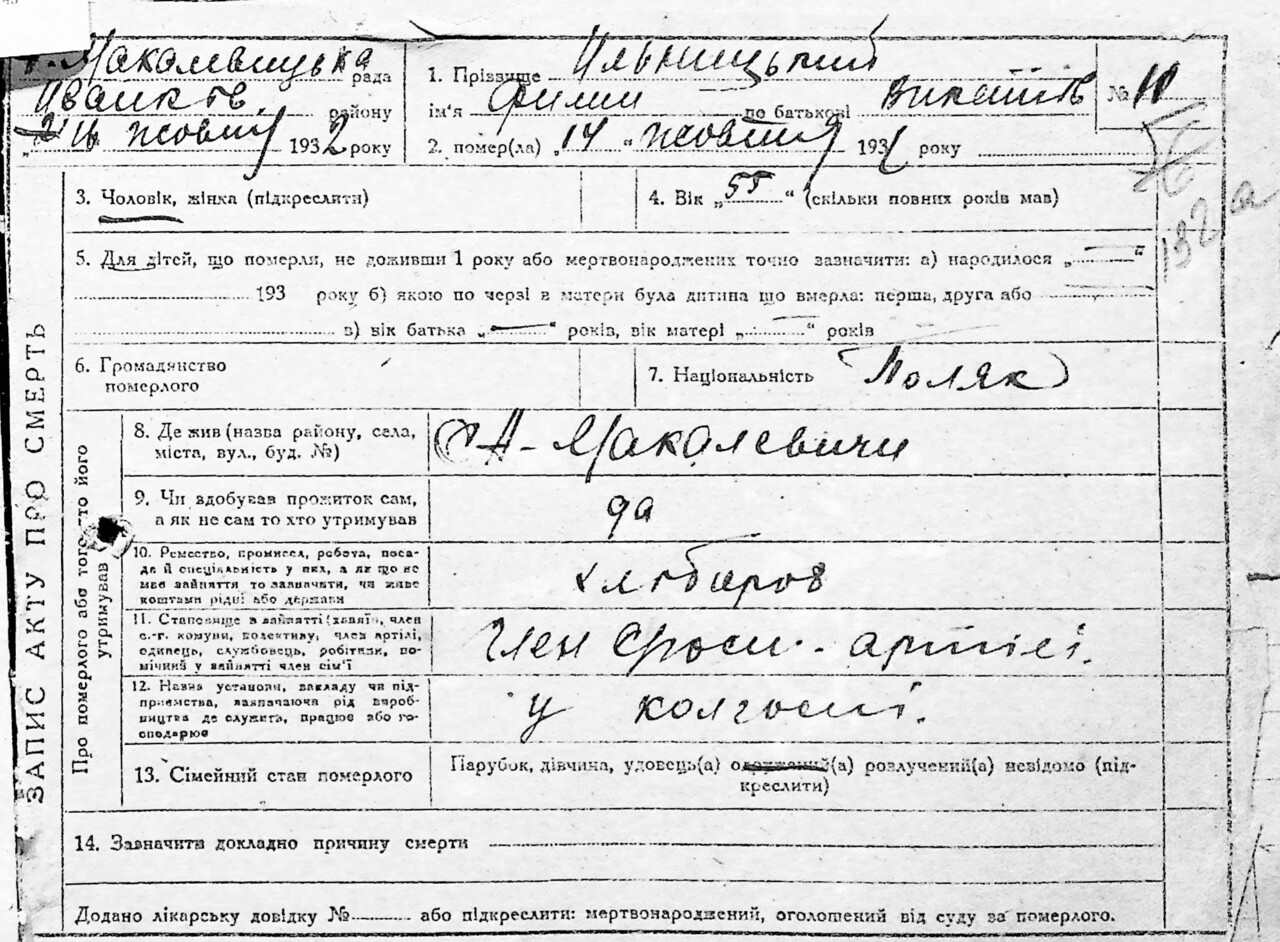 Макалевицька рада
Іванків району
„ “ жовтня 1932 року
1. Прізвище Ильницький
ім'я Филип по батькові
№ 11
2. помер(ла) „14“ жовтня 193 року
3. Чоловік, жінка (підкреслити)
4. Вік „55“ (скільки повних років мав)
192а
5. Для дітей, що померли, не доживши 1 року або мертвонароджених точно зазначити: а) народилося „ “
193 року б) якою по черзі в матери була дитина що вмерла: перша, друга або
в) вік батька „—“ років, вік матері „—“ років
6. Громадянство
померлого
7. Національність Поляк
ЗАПИС АКТУ ПРО СМЕРТЬ
Про померлого або того хто його
утримував
8. Де жив (назва району, села,
міста, вул., буд. №)
Макалевичи
9. Чи здобував прожиток сам,
а як не сам то хто утримував
да
10. Ремество, промисел, робота, поса-
да й спеціяльність у них, а як що не
мав зайняття то зазначити, чи живе
коштами рідні або держави
хлібороб
11. Становище в зайнятті (хазяїн, член
с.-г. комуни, колективу, член артілі,
одинець, службовець, робітник, по-
мічний у зайнятті член сім'ї
Член артілі.
12. Назва установи, закладу чи під-
приємства, зазначаючи рід вироб-
ництва де служить, працює або го-
сподарює
у колгоспі.
13. Сімейний стан померлого
Парубок, дівчина, удовець(а) одружений(а) розлучений(а) невідомо (під-
креслити)
14. Зазначити докладно причину смерти
Додано лікарську довідку № або підкреслити: мертвонароджений, оголошений від суду за померлого.